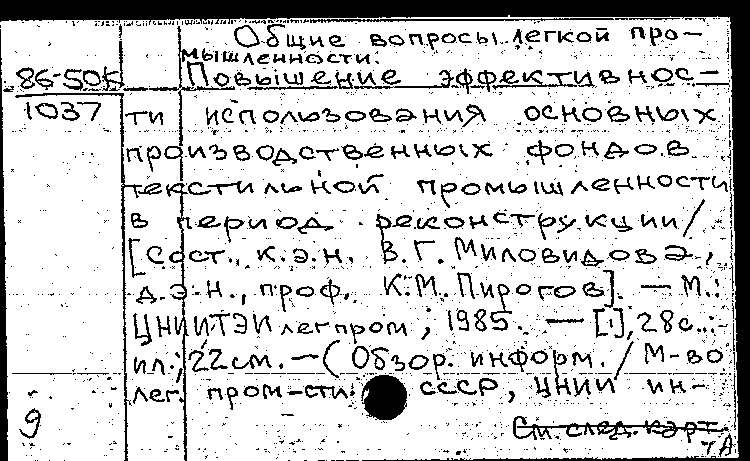 Общие вопросы легкой про-
мышленности.
86-50К Повышение эффективнос-
1037 ти использования основных
производственных фондов
текстильной промышленности
в период реконструкции/
[Сост., к.э.н. В.Г. Миловидова,
д.э.н., проф. К.М. Пирогов]. — М.:
ЦНИИТЭИлегпром, 1985. — [1], 28с.:
ил.; 22см. — (Обзор. информ. / М-во
лег. пром-сти СССР, ЦНИИ ин-
9 См. след. карт.